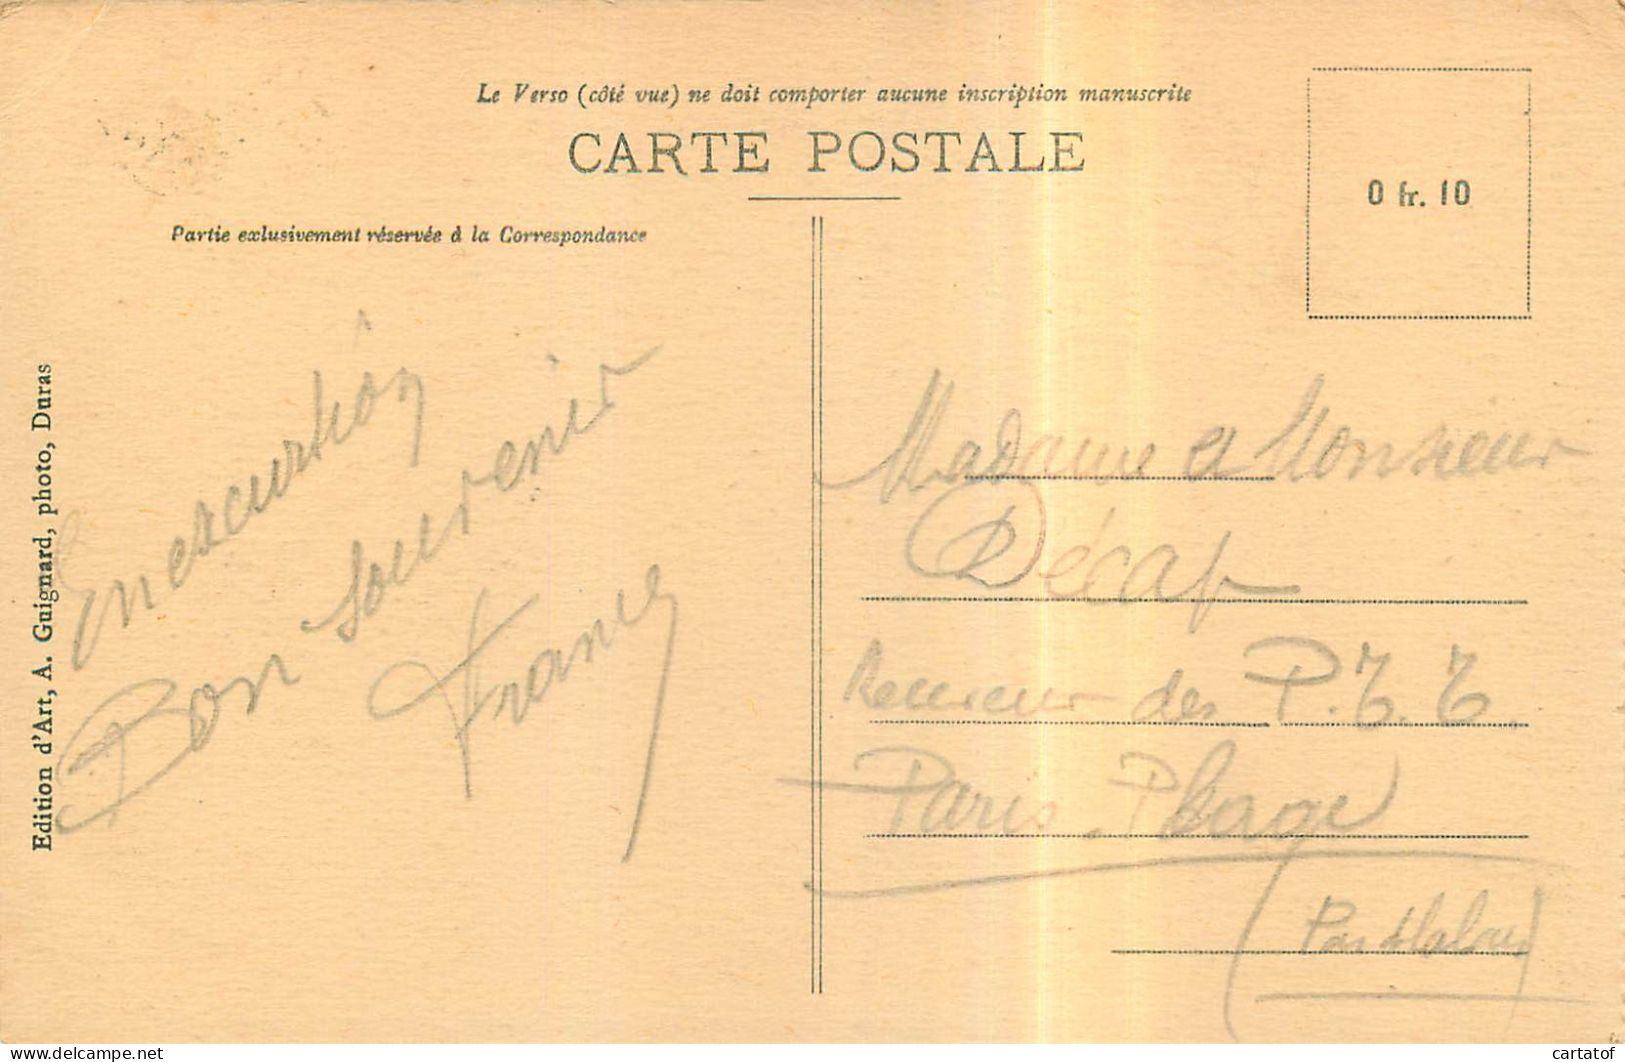 Le Verso (côté vue) ne doit comporter aucune inscription manuscrite
CARTE POSTALE
0 fr. 10
Partie exlusivement réservée à la Correspondance
Edition d'Art, A. Guignard, photo, Duras
En excurtion
Bon souvenir
Madame et Monsieur
Décap
Receveur des P.T.T.
Paris-Plage
(Pas de Calais)
delcampe.net
cartatof